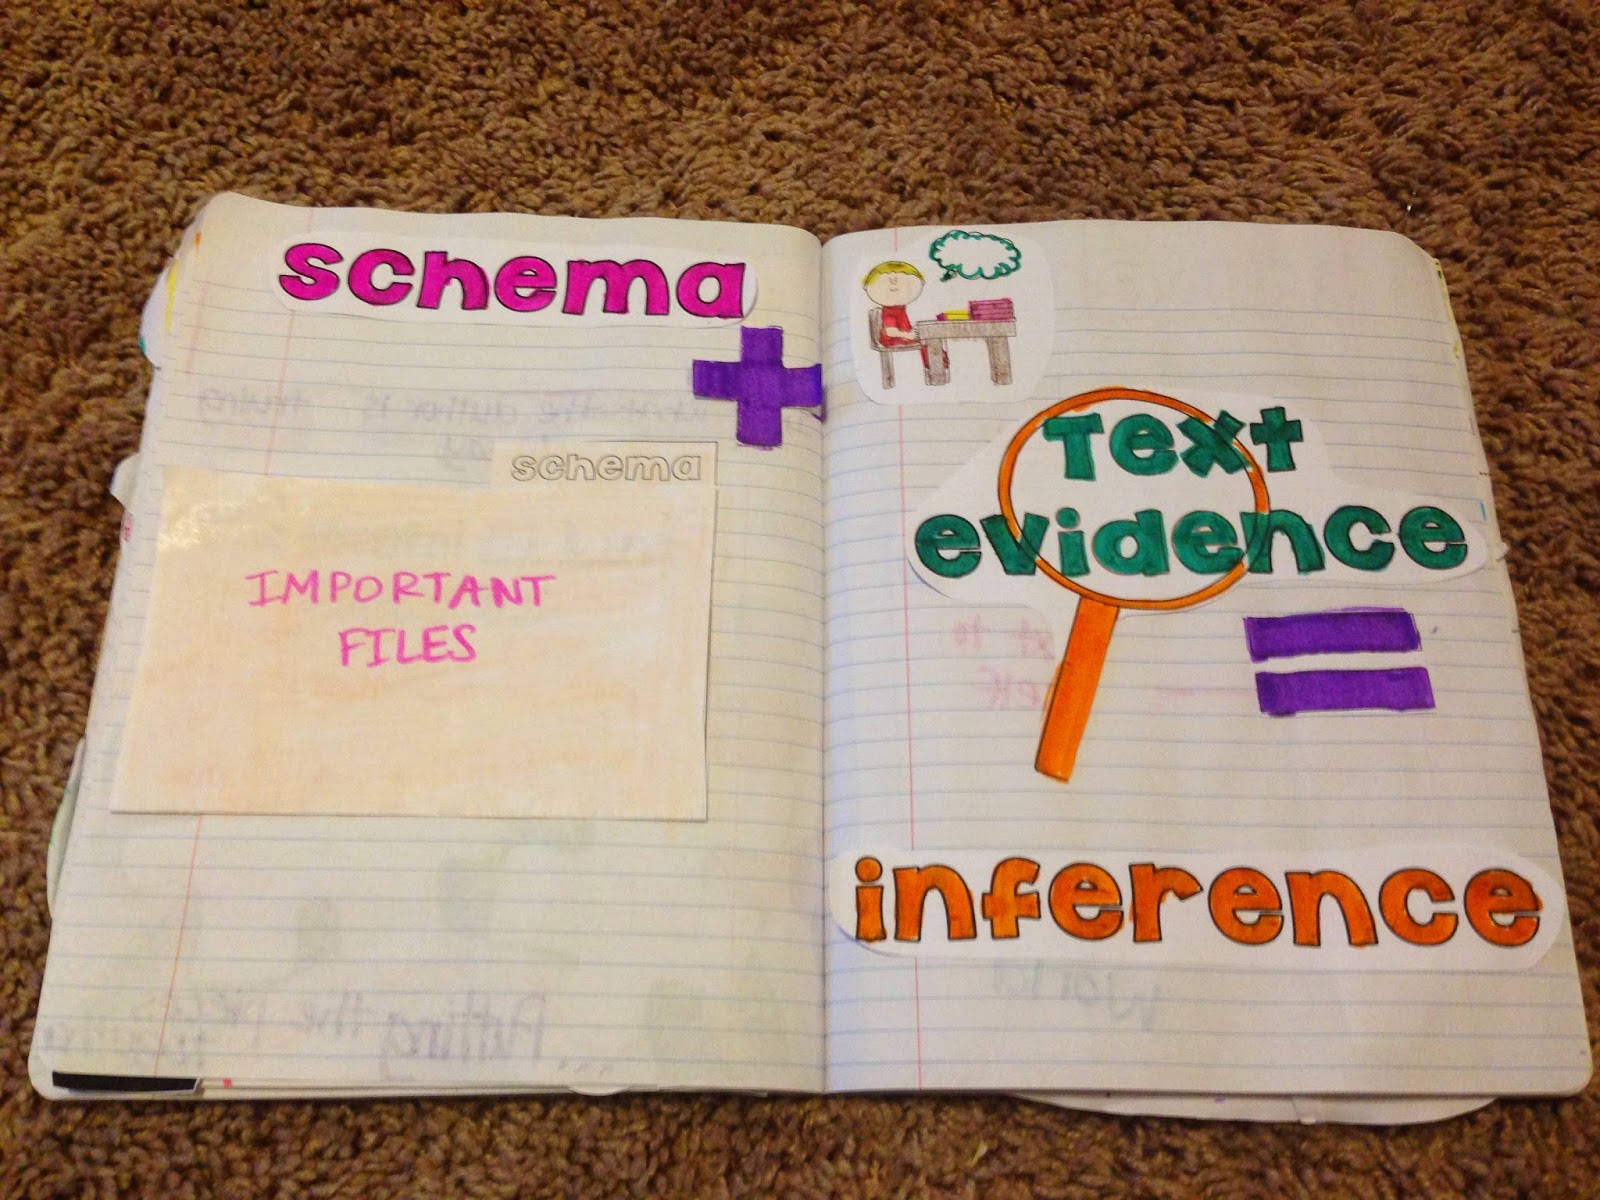 schema
+
schema
IMPORTANT
FILES
Text
evidence
=
inference